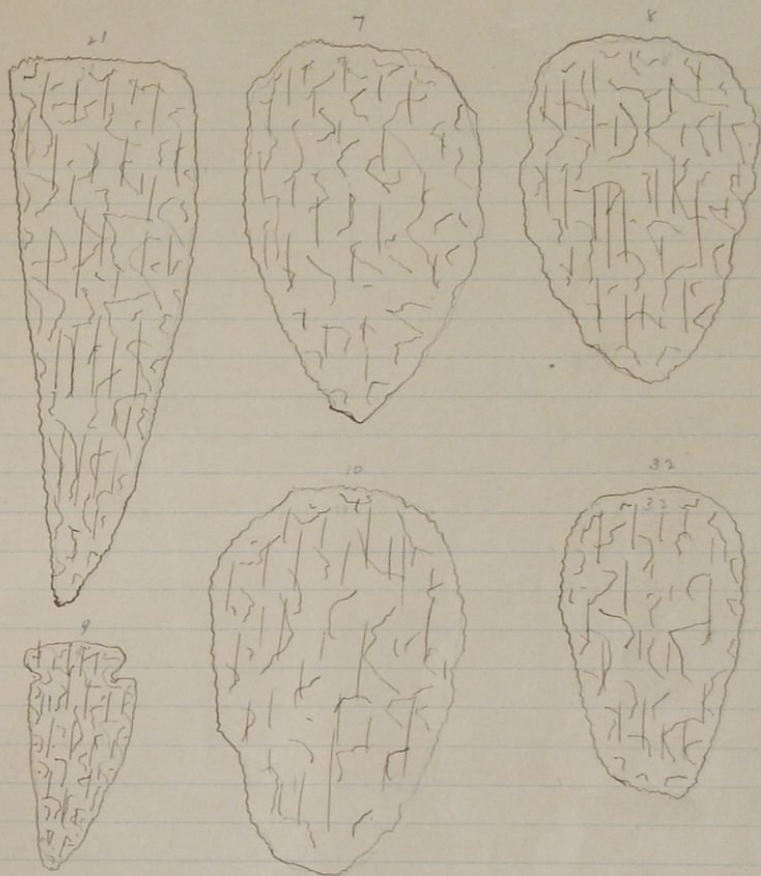 21
7
8
10
32
32
9